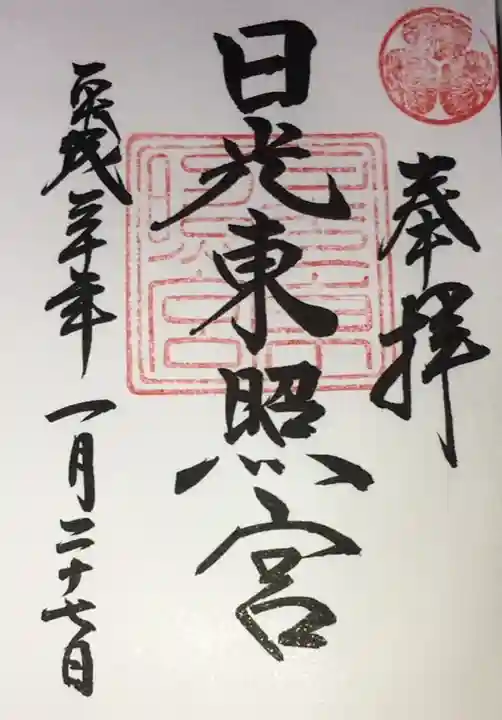 奉拝
日光東照宮
平成三十年一月二十七日